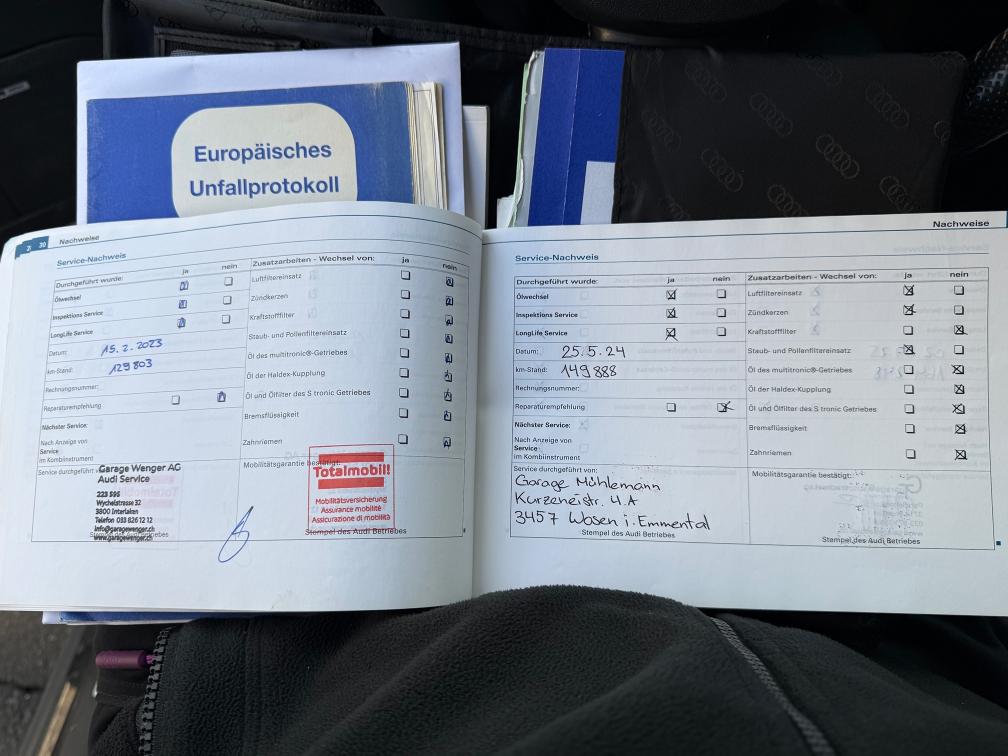 Europäisches
Unfallprotokoll
30
Nachweise
Service-Nachweis
Durchgeführt wurde: ja nein
Ölwechsel
Inspektions Service
LongLife Service
Datum: 15.2.2023
km-Stand: 129803
Rechnungsnummer:
Reparaturempfehlung
Nächster Service:
Nach Anzeige von
Service
im Kombiinstrument
Service durchgeführt von:
Garage Wenger AG
Audi Service
223 595
Wychelstrasse 32
3800 Interlaken
Telefon 033 826 12 12
info@garagewenger.ch
www.garagewenger.ch
Zusatzarbeiten - Wechsel von: ja nein
Luftfiltereinsatz
Zündkerzen
Kraftstofffilter
Staub- und Pollenfiltereinsatz
Öl des multitronic®-Getriebes
Öl der Haldex-Kupplung
Öl und Ölfilter des S tronic Getriebes
Bremsflüssigkeit
Zahnriemen
Mobilitätsgarantie bestätigt:
Totalmobil!
Mobilitätsversicherung
Assurance mobilité
Assicurazione di mobilità
Stempel des Audi Betriebes
Nachweise
Service-Nachweis
Durchgeführt wurde: ja nein
Ölwechsel
Inspektions Service
LongLife Service
Datum: 25.5.24
km-Stand: 149888
Rechnungsnummer:
Reparaturempfehlung
Nächster Service:
Nach Anzeige von
Service
im Kombiinstrument
Service durchgeführt von:
Garage Mühlemann
Kurzeneistr. 4.A
3457 Wasen i. Emmental
Stempel des Audi Betriebes
Zusatzarbeiten - Wechsel von: ja nein
Luftfiltereinsatz
Zündkerzen
Kraftstofffilter
Staub- und Pollenfiltereinsatz
Öl des multitronic®-Getriebes
Öl der Haldex-Kupplung
Öl und Ölfilter des S tronic Getriebes
Bremsflüssigkeit
Zahnriemen
Mobilitätsgarantie bestätigt:
Stempel des Audi Betriebes